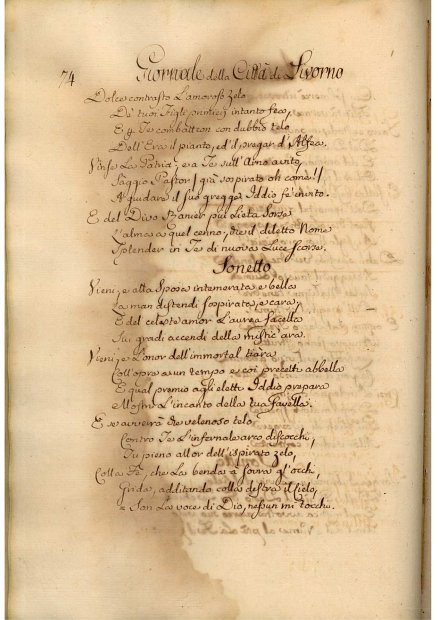 74 Giornale della Città di Livorno
Dolce contrasto L'amoroso zelo
De' tuoi Figli punse, intanto feo,
E p. Te combattron con dubbio telo
Dell' Era il pianto, ed'il pregar d'Alfea.
Vinse La Patria, e a Te sull' Arno avito,
Saggio Pastor / già sospirato oh come! /
A guidare il suo gregge Iddio fe' invito.
E del Divo Ranier più Lieta sorse
L'alma a quel cenno, che il diletto Nome
Splender in Te di nuova Luce scorse.
Sonetto
Vieni, e alla Sposa intemerata e bella
La man distendi sospirata, e cara,
E del celeste amor L'aurea facella
Sui gradi accendi della mistic' ara.
Vieni, e L'onor dell' immortal tiara
Coll' opra a un tempo e coi precetti abbella
E qual premio agli eletti Iddio prepara
Mostri L'incanto della tua favella.
E se avverrà che velenoso telo
Contro Te L'infernale arco discocchi,
Tu pieno allor dell' ispirato zelo,
Colla Fè, che La benda à sovra gl'occhi,
Grida, additando colla destra il Cielo,
= Son La voce di Dio, nessun mi tocchi.